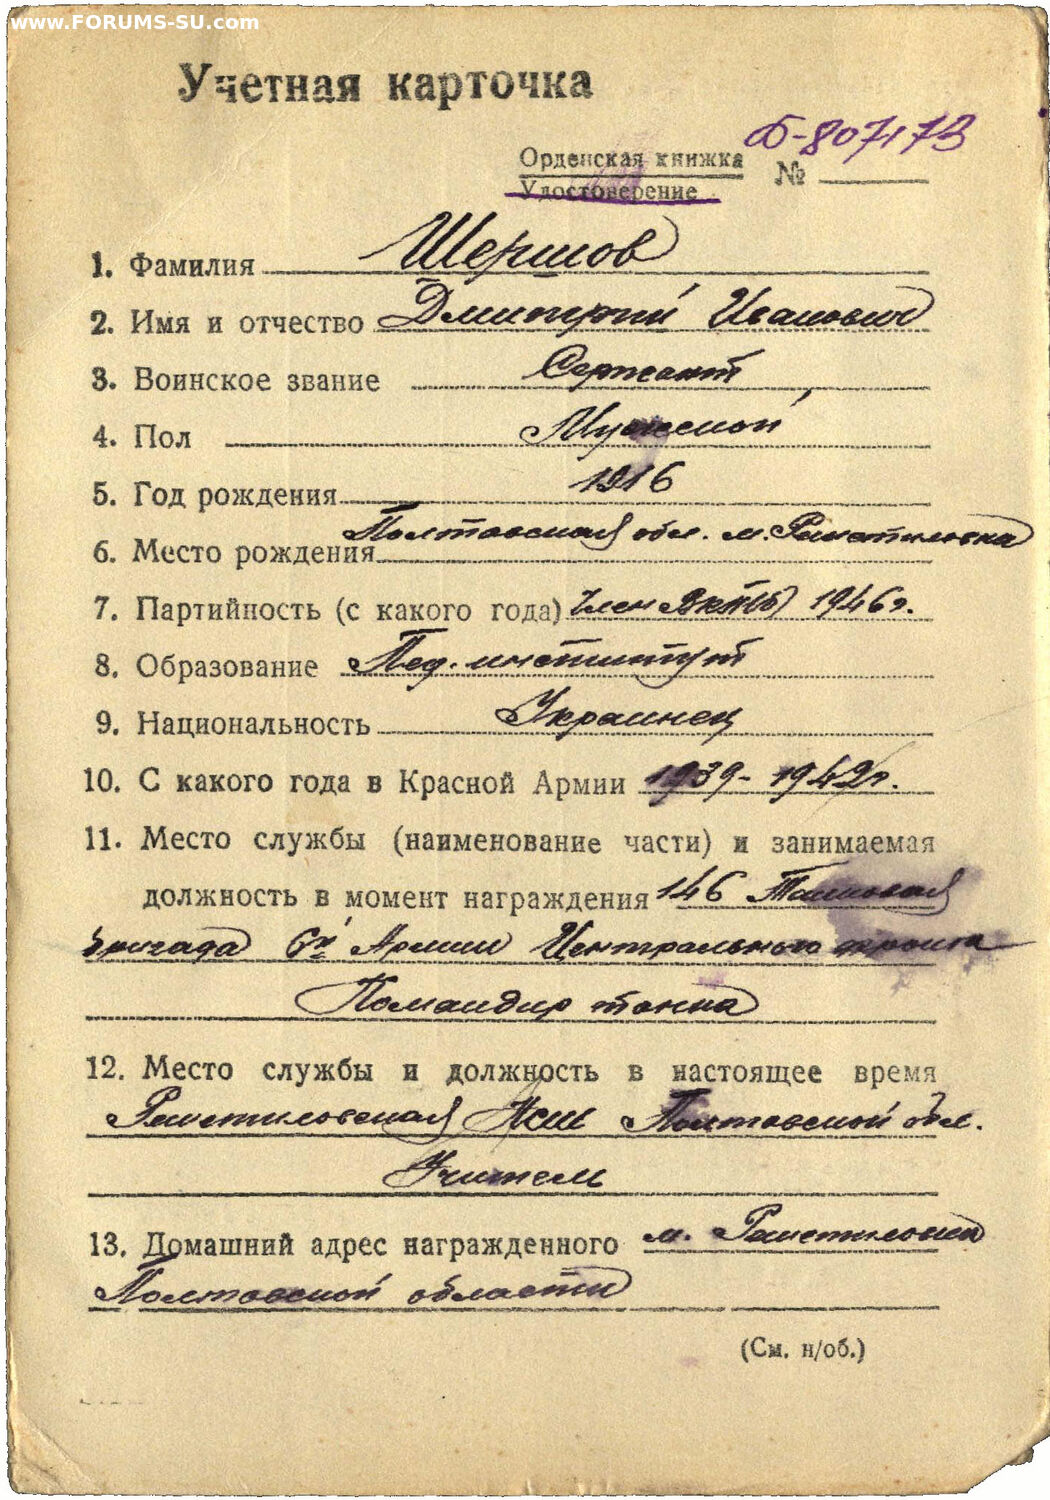 www.FORUMS-SU.com
Учетная карточка
Б-807173
Орденская книжка
Удостоверение №
1. Фамилия Шершов
2. Имя и отчество Дмитрий Иванович
3. Воинское звание Сержант
4. Пол Мужской
5. Год рождения 1916
6. Место рождения Полтавская обл. м. Решетиловка
7. Партийность (с какого года) Член ВКП(б) 1946г.
8. Образование Пед. институт
9. Национальность Украинец
10. С какого года в Красной Армии 1939-1942г.
11. Место службы (наименование части) и занимаемая
должность в момент награждения 146 Танковая
бригада 6й Армии Центрального фронта
Командир танка
12. Место службы и должность в настоящее время
Решетиловская Полтавской обл.
Учитель
13. Домашний адрес награжденного м. Решетиловка
Полтавской области
(См. н/об.)